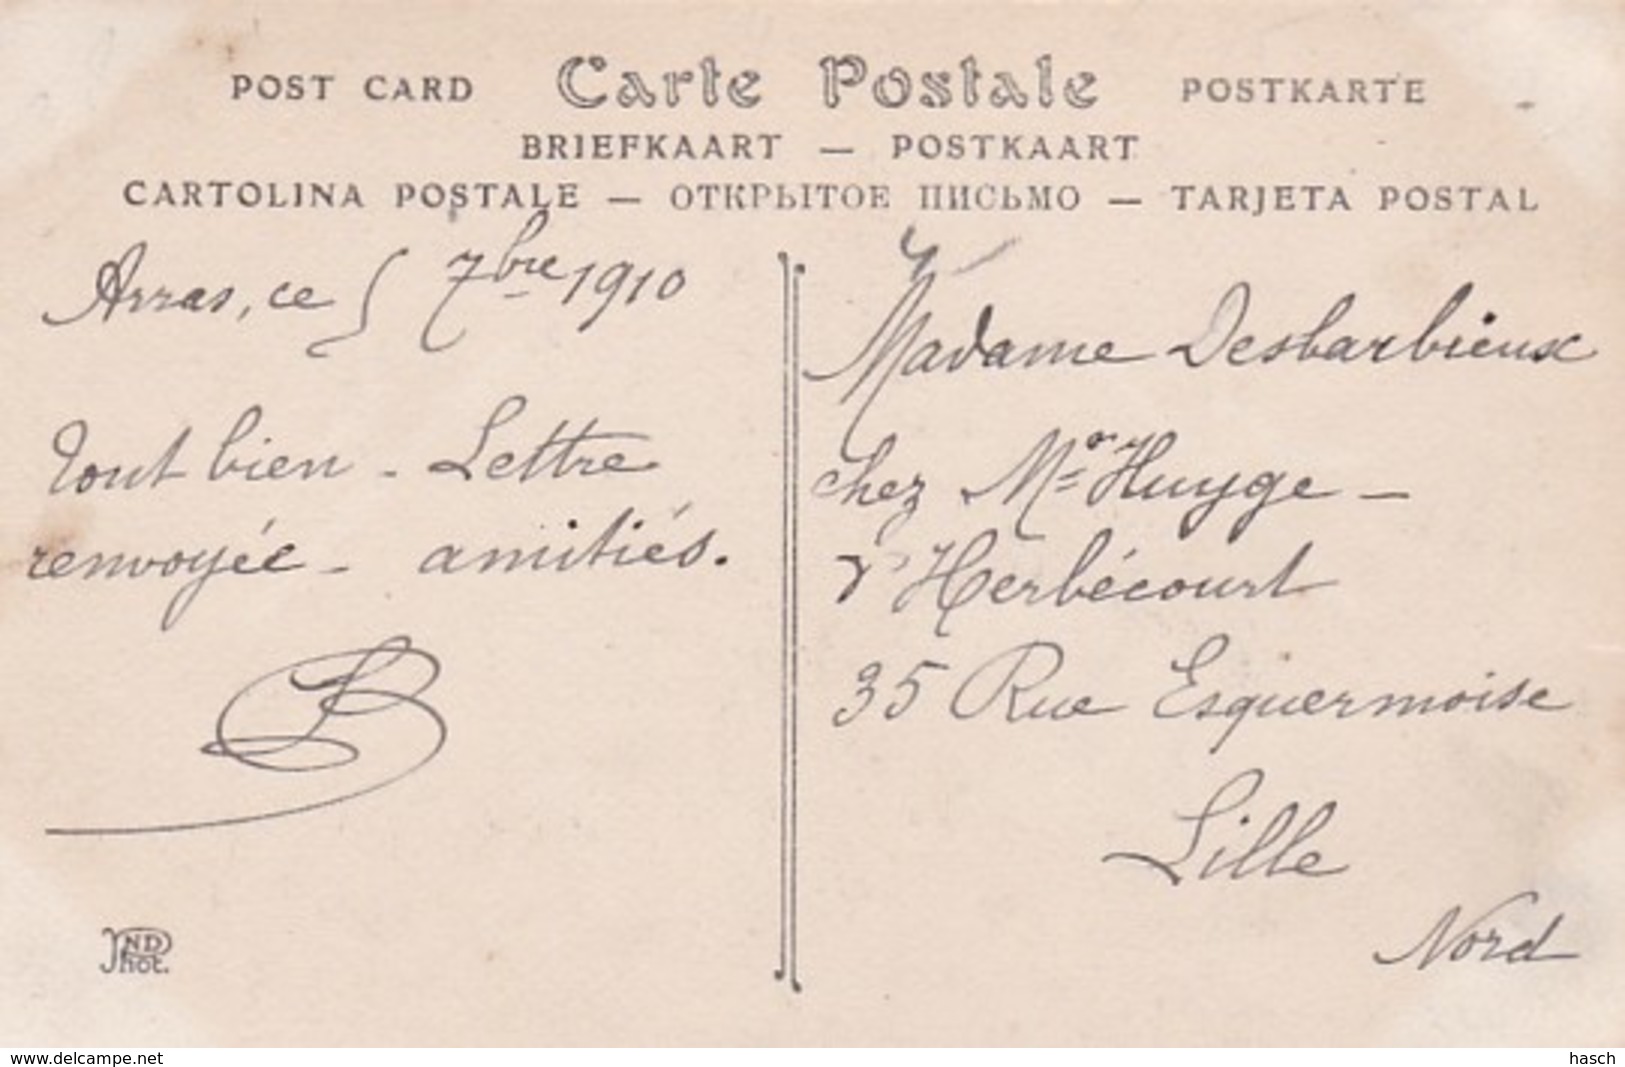 POST CARD Carte Postale POSTKARTE
BRIEFKAART — POSTKAART
CARTOLINA POSTALE — ОТКРЫТОЕ ПИСЬМО — TARJETA POSTAL
Arras, ce 5 7bre 1910
Tout bien - Lettre
renvoyée - amitiés.
Madame Desbarbieux
chez Mr Huyge -
d'Herbécourt
35 Rue Esquermoise
Lille
Nord
ND
Phot.
www.delcampe.net
hasch